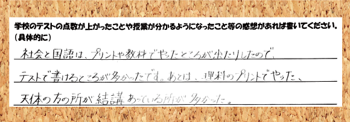 学校のテストの点数が上がったことや授業が分かるようになったこと等の感想があれば書いてください。
(具体的に)
社会と国語は、プリントや教科でやったところが出たりしたので、
テストで書けるところが多かったです。あとは、理科のプリントでやった、
天体の方の所が結講あっている所が多かった。